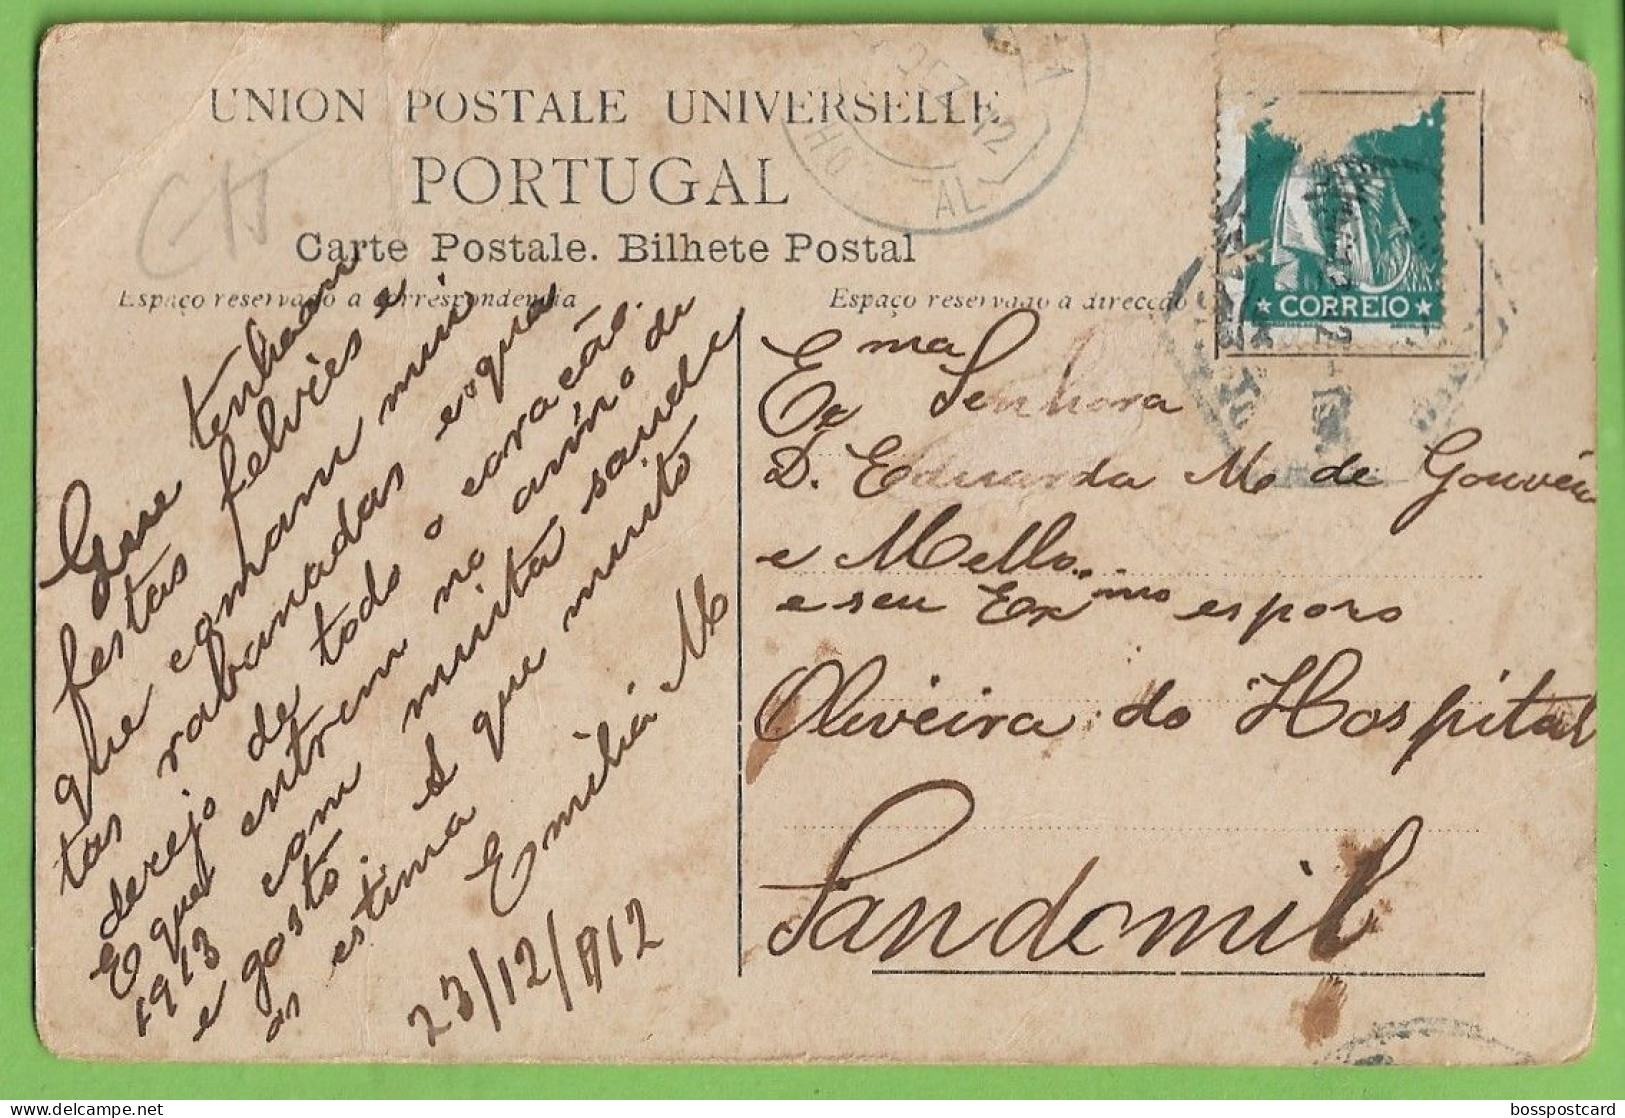 UNION POSTALE UNIVERSELLE
PORTUGAL
Carte Postale. Bilhete Postal
Espaço reservado á correspondencia
Espaço reservado á direcção
★ CORREIO ★
AL
Que tenham
festas felizes e
que comam mui
tas rabanadas e o que
desejo de todo o coração.
E que entrem no anno de
1913 com muita saude
e gosto. É que muito
as estima
Emilia M
23/12/912
Exma Senhora
D. Eduarda M de Gouvêa
e Mello
e seu Exmmo esposo
Oliveira do Hospital
Sandomil
bosspostcard